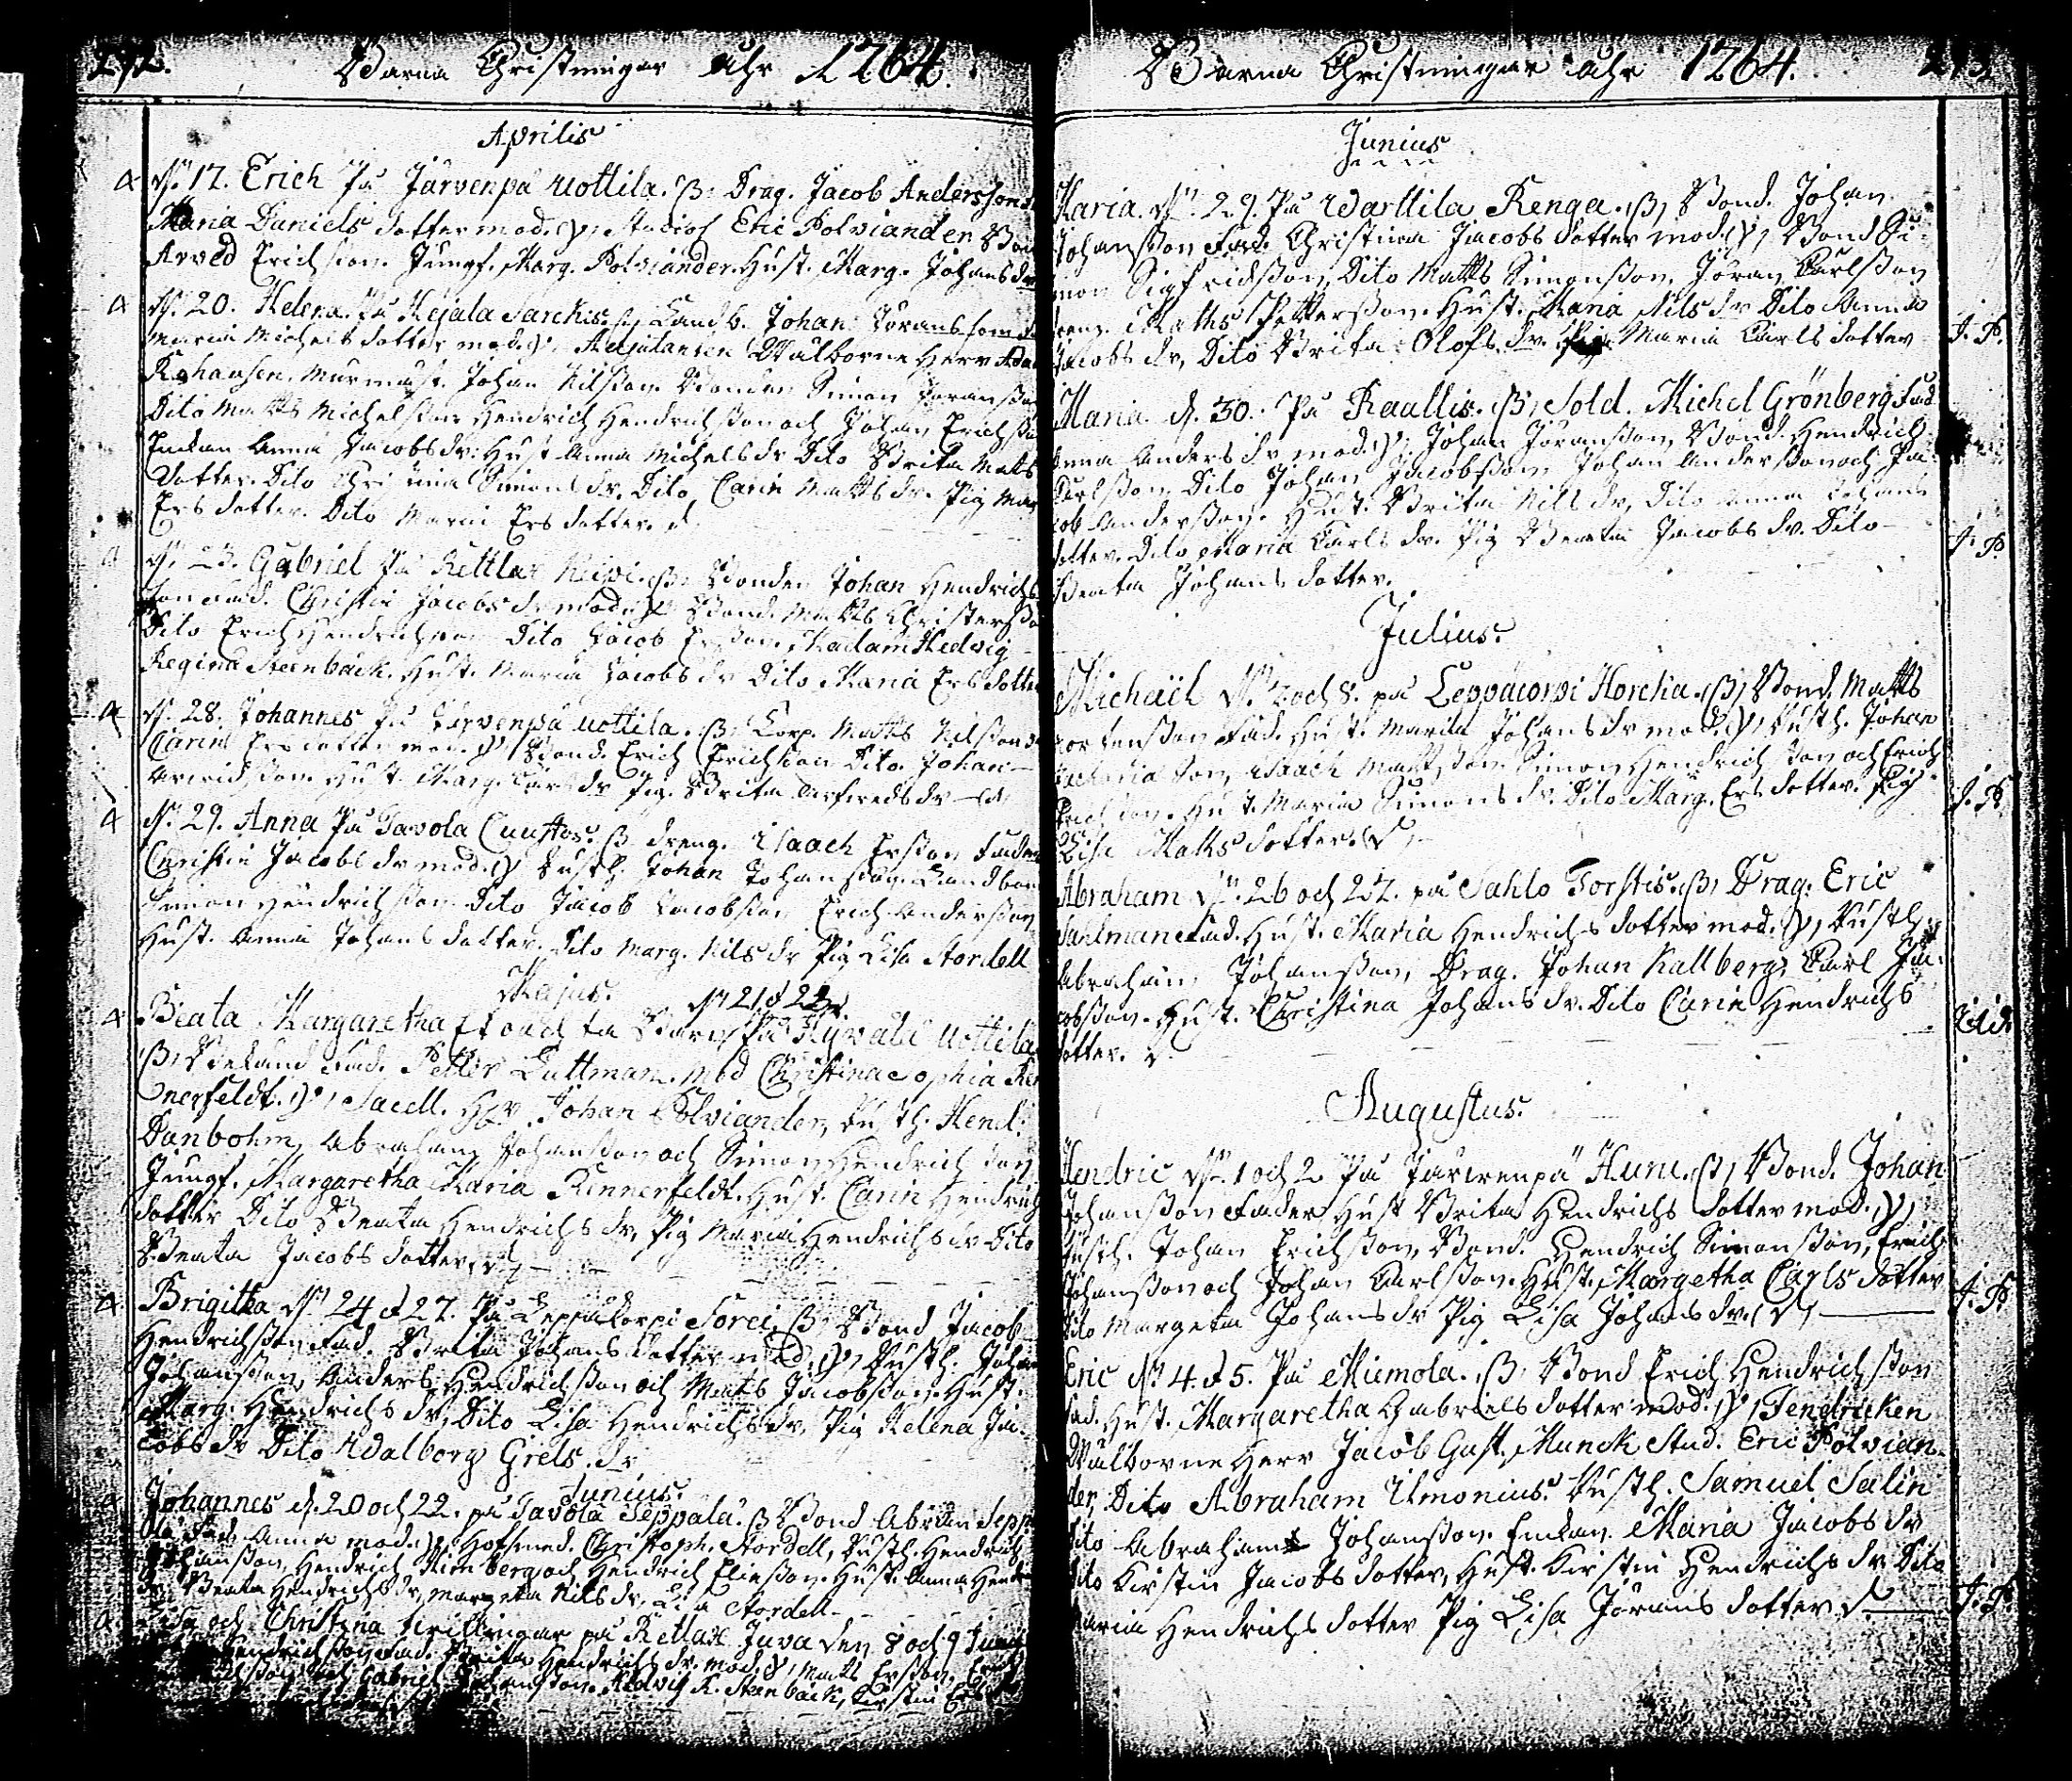 272. Barna Christningar åhr 1764.
Aprilis
d. 17. Erich På Järvenpä Uottila. (B) Drag. Jacob Andersson
Maria Daniels dotter mod. (V) Studios Eric Polviander Bond
Arved Erichsson. Jungf. Marg. Polviander. Hust. Marg. Johans dr
d. 20. Helena. På Kejala Sarckis. Landb. Johan Jöransson
Maria Michels dotter mod. (V) Adjutanten Wälborne Herr
Johan Nilsson Bonden Simon Jöransson
Dito Matts Michelsson Hendrich Hendrichsson och Johan Erichsson
Enkan Anna Jacobs dr. Hust Anna Michels dr Dito Brita Matts
dotter. Dito Christina Simons dr. Dito, Carin Matts dr. Pig. Mar
Ers dotter. Dito Maria Ers dotter.
d. 23. Gabriel På Kettlax (B) Bonden Johan Hendrichs
son fad. Christin Jacobs dr mod. (V) Bond. Matts Christersson
Dito Erich Hendrichsson Dito Jacob Ersson. Madam Hedvig
Regina Steenbäck. Hust. Maria Jacobs dr Dito Maria Ers dotter
d. 28. Johannes På Järvenpä Uottila. (B) Corp. Matts Nilsson
Carin Ers dotter mod. (V) Bond. Erich Erichsson Dito. Johan
Arvidsson. Hust. Marg. Carls dr Pig. Brita Arfveds dr
d. 29. Anna På Tavola Cuustos. (B) dreng. Isaach Ersson Fader
Christin Jacobs dr mod. (V) Rusth. Johan Johansson. Landbon
Simon Hendrichsson Dito Jacob Jacobsson Erich Andersson
Hust. Anna Johans dotter. Dito Marg. Nils dr Pig Lisa Nordell
Majus.
d. 21 & 22.
Beata Margaretha På Hyvälä Uottila
(B) fad. Petter Luttman. Mod Christina Sophia
nerfeldt. (V) Sacell. Herr Johan Polviander, Rusth. Hend:
Danbohm, Abraham Johansson och Simon Hendrichsson
Jungf. Margaretha Maria Rennerfeldt. Hust. Carin Hendrichs
dotter Dito Beata Hendrichs dr, Pig Maria Hendrichs dr Dito
Beata Jacobs dotter.
Brigitha d. 24 & 27. På Leppäkorpi Sorri. (B) Bond Jacob
Hendrichsson fad. Brita Johans dotter mod. (V) Rusth. Johan
Johansson, Anders Hendrichsson och Matts Jacobsson. Hust.
Marg. Hendrichs dr, Dito Lisa Hendrichs dr, Pig Helena Ja-
cobs dr Dito Walborg Grels. dr
Junius.
Johannes d. 20 och 22. på Tavola Seppälä. (B) Bond Abram Sepp
Fad. Anna mod. (V) Hofsmed. Christoph. Nordell, Rusth. Hendrich
Johansson, Hendrich och Hendrich Eliesson. Hust. Anna Hend
dr Beata Hendrichs dr, Margeta Nils dr, Lisa Nordell
Lisa och Christina tvillingar på Ketlax Juva den 8 och 9 Junii
Hendrichsson fad. Brita Hendrichs dr. mod. (V) Matts Ersson, Erich
Gabriel Johansson. Hedvig R. Stenbäck, Kirstin Ers
Barna Christningar åhr 1764. 273
Junius
Maria. d. 29. På Warttila Renga. (B) Bond. Johan
Johansson Fad. Christina Jacobs dotter mod. (V) Bond Si-
mon Sigfridsson, Dito Matts Simonsson, Jöran Carlsson
dreng. Matts Pettersson. Hust. Maria Nils dr Dito Anna
Jacobs dr, Dito Brita Olofs dr. Pig Maria Carls dotter J. P.
Maria d. 30. På Raallis. (B) Sold. Michel Grönberg Fad
Anna Anders dr mod. (V) Johan Jöransson, Bond. Hendrich
Carlsson Dito Johan Jacobsson, Johan Andersson och Ja-
cob Andersson. Hust. Brita Nils dr, Dito Anna Johans
dotter. Dito Maria Carls dr. Pig Beata Jacobs dr. Dito J. P.
Beata Johans dotter.
Julius.
Michaël d. 7 och 8. på Leppäcorpi Horcka. (B) Bond. Matts
Mortensson Fad. Hust. Maria Johans dr mod. (V) Rusth. Johan
Zachariasson, Isaach Mattsson Simon Hendrichsson och Erich
Erichsson. Hust. Maria Simons dr. Dito Marg. Ers dotter. Pig J. P.
Lisa Matts dotter.
Abraham d. 26 och 27. på Sahlo Torstis. (B) Drag. Eric
Sahlman Fad. Hust. Maria Hendrichs dotter mod. (V) Rusth.
Abraham Johansson, Drag. Johan Kallberg, Carl Ja-
cobsson. Hust. Christina Johans dr. Dito Carin Hendrichs
dotter.
Augustus.
Hendric d. 1 och 2 På Järwenpä Huni. (B) Bond. Johan
Johansson Fader Hust Brita Hendrichs dotter mod. (V)
Rusth. Johan Erichsson, Bond. Hendrich Simonsson, Erich
Johansson och Johan Carlsson. Hust. Margetha Carls dotter
Dito Margeta Johans dr Pig Lisa Johans dr. J. P.
Eric d. 4 & 5. På Miemola. (B) Bond Erich Hendrichsson
fad. Hust. Margaretha Gabriels dotter mod. (V) Fendricken
Wälborne Herr Jacob Gust. Munck Stud. Eric Polvian-
der Dito Abraham Ilmonius. Rusth. Samuel Salin
Dito Abraham Johansson. Enkan. Maria Jacobs dr
Dito Kirstin Jacobs dotter, Hust. Kirstin Hendrichs dr Dito
Maria Hendrichs dotter Pig Lisa Jörans dotter. J. P.